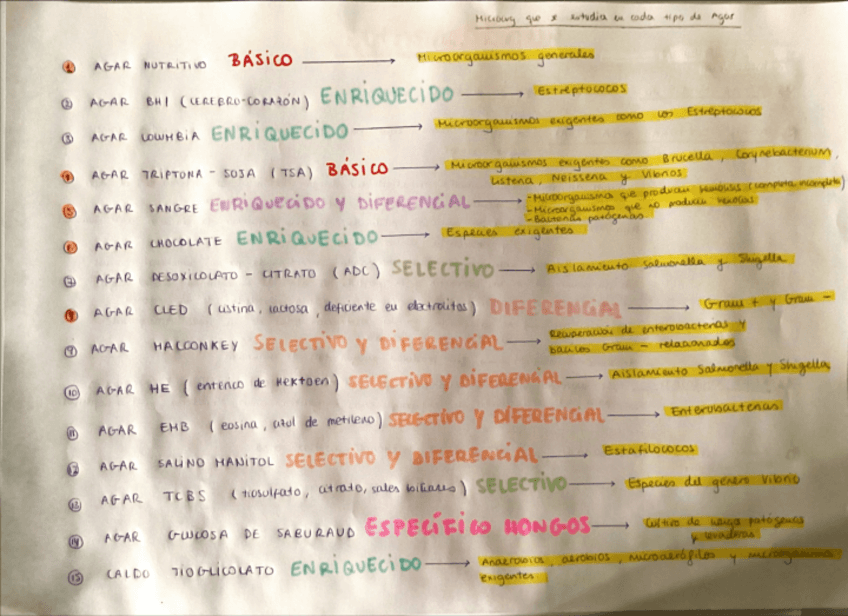 Microorg que se estudia en cada tipo de Agar
1 AGAR NUTRITIVO BÁSICO → Microorganismos generales
2 AGAR BHI (CEREBRO-CORAZÓN) ENRIQUECIDO → Estreptococos
3 AGAR COLUMBIA ENRIQUECIDO → Microorganismos exigentes como los Estreptococos
4 AGAR TRIPTONA - SOJA (TSA) BÁSICO → Microorganismos exigentes como Brucella, Corynebacterium,
Listeria, Neisseria y Vibrios
5 AGAR SANGRE ENRIQUECIDO Y DIFERENCIAL → - Microorganismos que producen hemólisis (completa incompleta)
- Microorganismos que no producen hemólisis
- Bacterias patógenas
6 AGAR CHOCOLATE ENRIQUECIDO → Especies exigentes
7 AGAR DESOXICOLATO - CITRATO (ADC) SELECTIVO → Aislamiento Salmonella y Shigella
8 AGAR CLED (cistina, lactosa, deficiente en electrolitos) DIFERENCIAL → Gram + y Gram -
9 AGAR MACCONKEY SELECTIVO Y DIFERENCIAL → Recuperación de enterobacterias y
bacilos Gram - relacionados
10 AGAR HE (entérico de Hektoen) SELECTIVO Y DIFERENCIAL → Aislamiento Salmonella y Shigella
11 AGAR EMB (eosina, azul de metileno) SELECTIVO Y DIFERENCIAL → Enterobacterias
12 AGAR SALINO MANITOL SELECTIVO Y DIFERENCIAL → Estafilococos
13 AGAR TCBS (tiosulfato, citrato, sales biliares) SELECTIVO → Especies del género Vibrio
14 AGAR GLUCOSA DE SABURAUD ESPECÍFICO HONGOS → Cultivo de hongos patógenos
y levaduras
15 CALDO TIOGLICOLATO ENRIQUECIDO → Anaerobios, aerobios, microaerófilos y microorganismos
exigentes